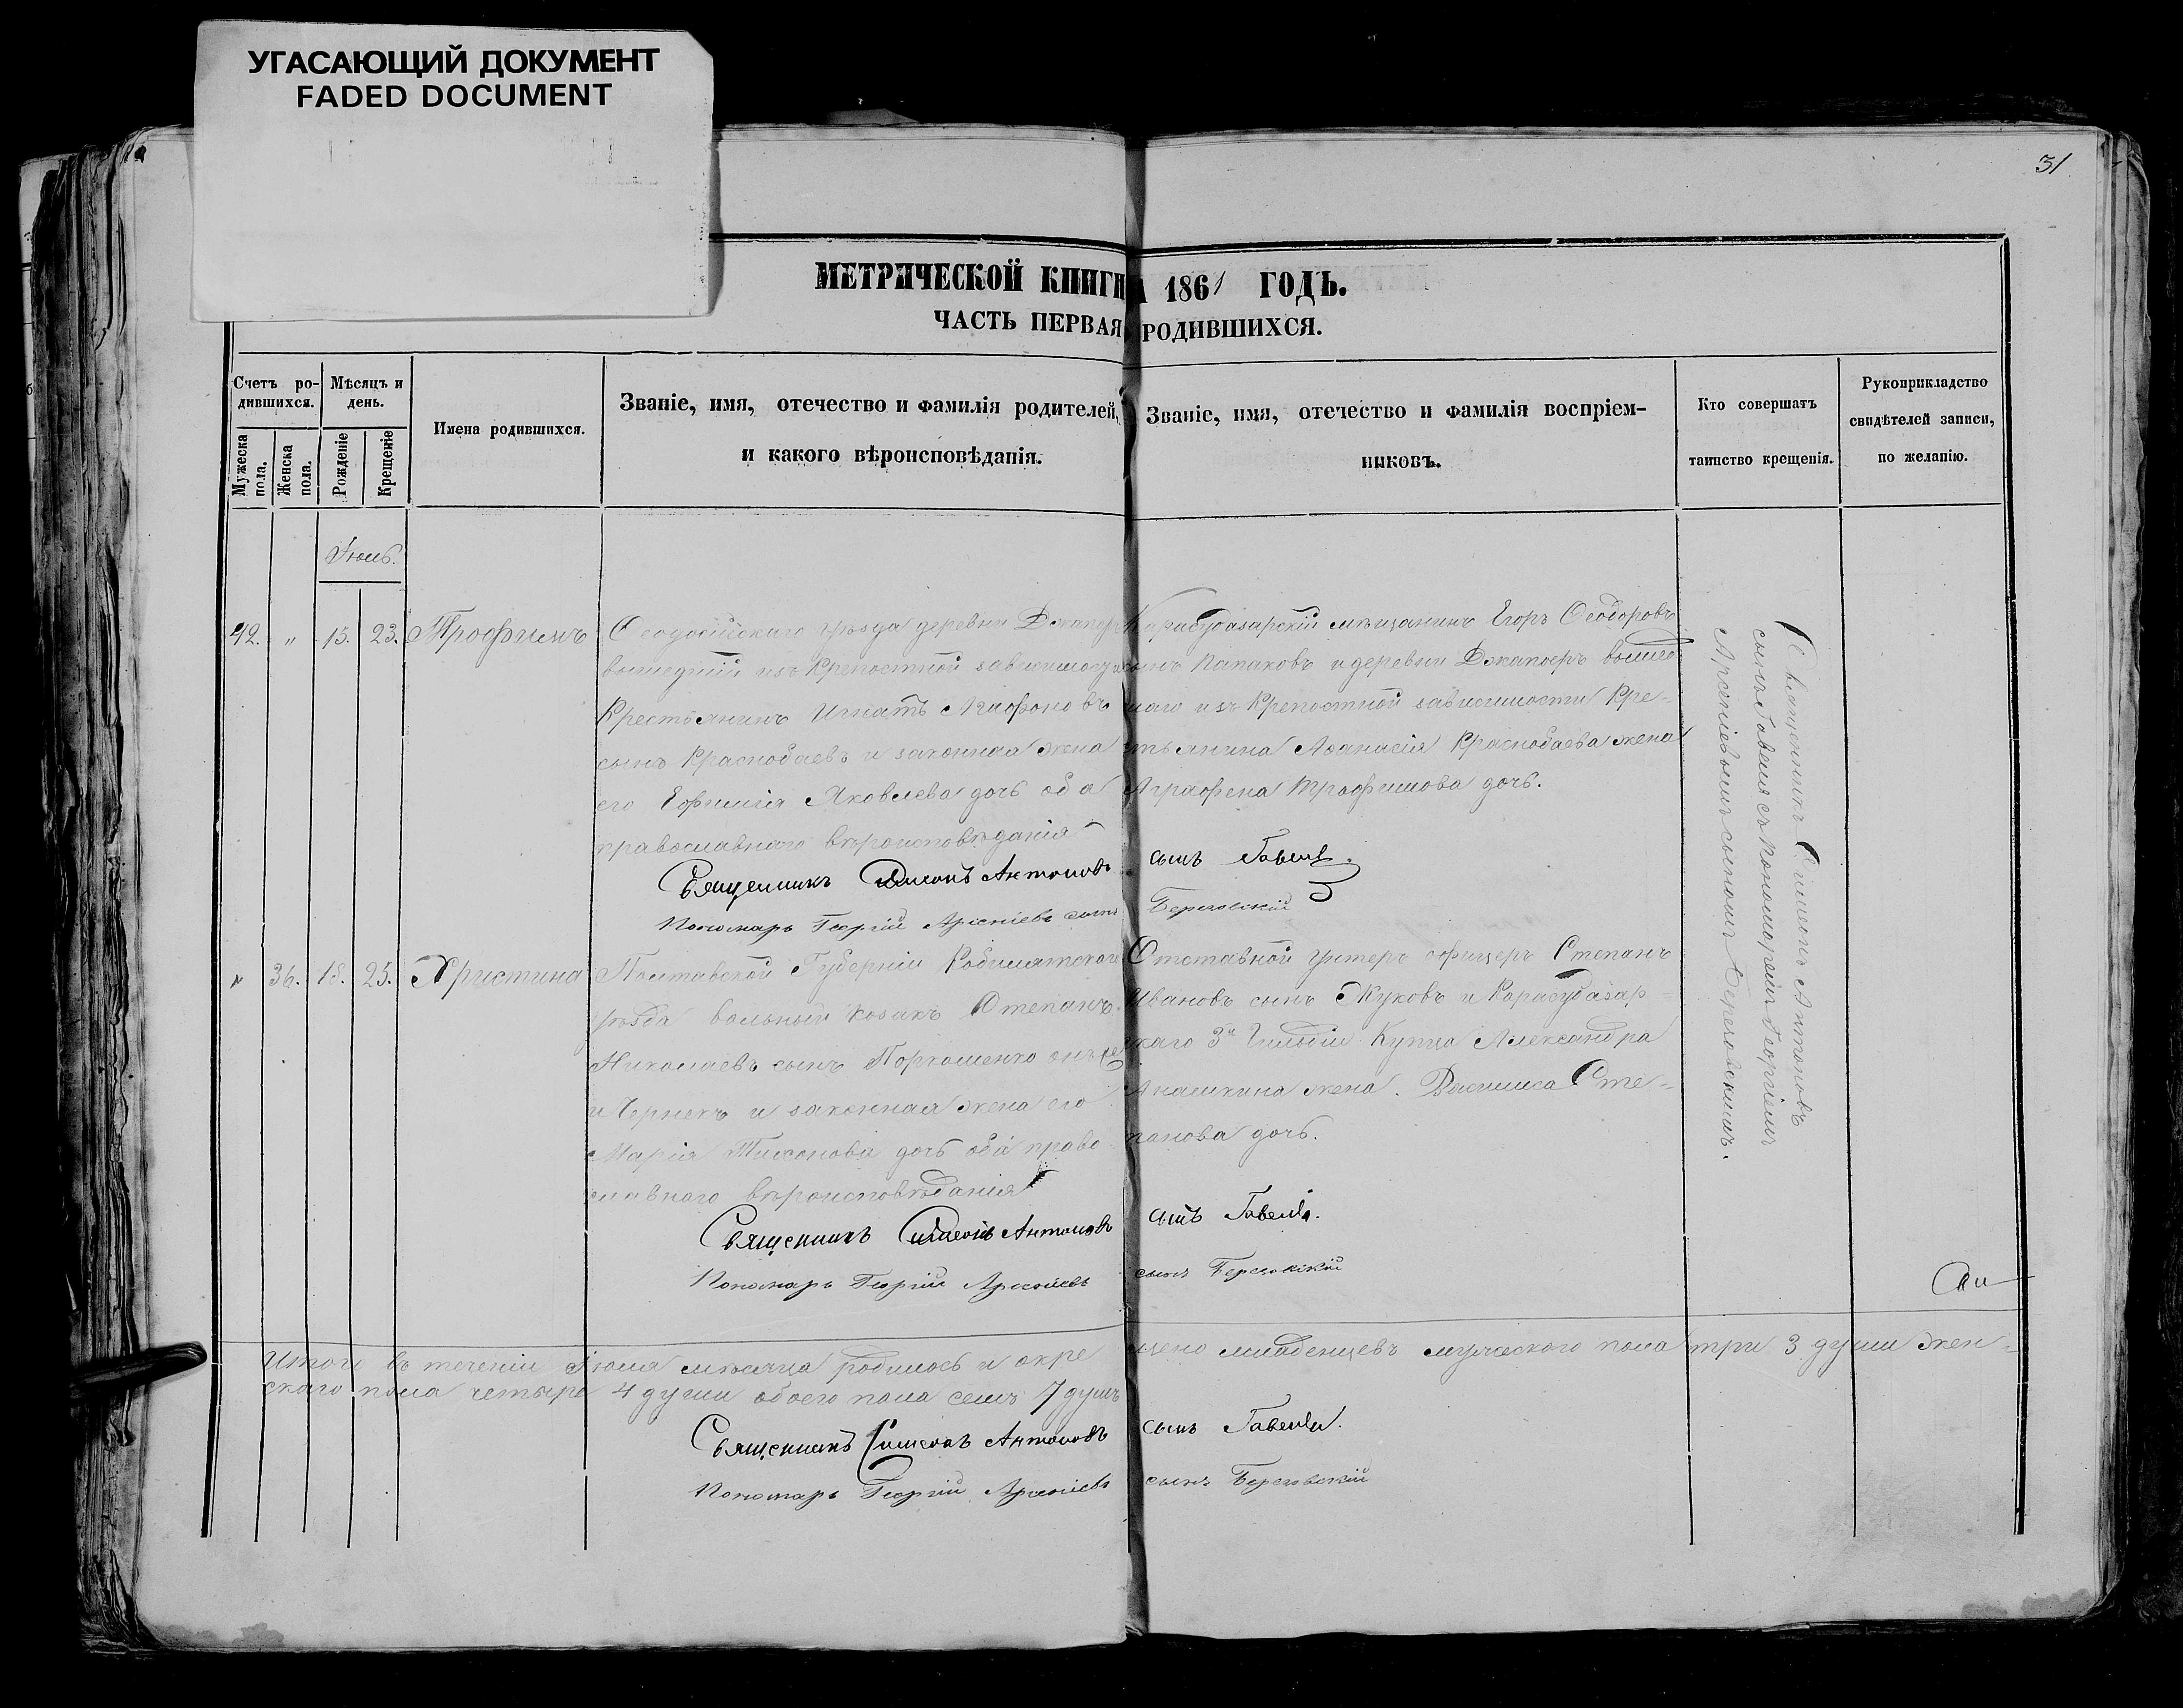 УГАСАЮЩИЙ ДОКУМЕНТ
FADED DOCUMENT
31
МЕТРИЧЕСКОЙ КНИГИ
1861 ГОДЪ.
ЧАСТЬ ПЕРВАЯ
РОДИВШИХСЯ.
Счетъ ро-
дившихся.
Мужеска
пола.
Женска
пола.
Мѣсяцъ и
день.
Рожденіе
Крещеніе
Имена родившихся.
Званіе, имя, отечество и фамилія родителей,
и какого вѣроисповѣданія.
Званіе, имя, отечество и фамилія воспріем-
никовъ.
Кто совершатъ
таинство крещенія.
Рукоприкладство
свидѣтелей записи,
по желанію.
Іюль.
42. " 15. 23. Трофимъ
Ѳеодосійскаго уѣзда деревни
вышедшій изъ крепостной
Крестьянинъ Игнатъ Агафоновъ
сынъ Краснобаевъ и законная жена
его Ефимія Яковлева дочь оба
православнаго вѣроисповѣданія
Карасубазарскій мѣщанинъ Егоръ Ѳеодоровъ
сынъ Папаковъ и деревни вышед
шаго изъ крепостной зависимости кре-
стьянина Аѳанасія Краснобаева жена
Аграфена Трофимова дочь.
Священникъ Симеонъ Антоновъ
сынъ Гавель.
Пономарь Георгій Арсеніевъ сынъ
Березовскій
" 36. 18. 25. Христина
Полтавской Губерніи Кобилятского
уѣзда вольный козакъ Степанъ
Николаевъ сынъ
и законная жена его
Марія Тихонова дочь оба право
славнаго вѣроисповѣданія
Отставной унтеръ офицеръ Степанъ
Ивановъ сынъ Жуковъ и Карасубазар-
скаго 3й Гильдіи Купца Александра
Анашкина жена Василиса Сте-
панова дочь.
Священникъ Симеонъ Антоновъ
сынъ Гавель.
Пономарь Георгій Арсеніевъ
сынъ Березовскій
Священникъ Симеонъ Антоновъ
сынъ Гавель съ пономаремъ Георгіемъ
Арсеніевымъ сыномъ Березовскимъ.
Итого въ теченіи Іюля мѣсяца родилось и окре
щено младенцевъ мужеского пола три 3 души жен-
скаго пола четыре 4 души обоего пола семь 7 душъ
Священникъ Симеонъ Антоновъ
сынъ Гавель.
Пономарь Георгій Арсеніевъ
сынъ Березовскій